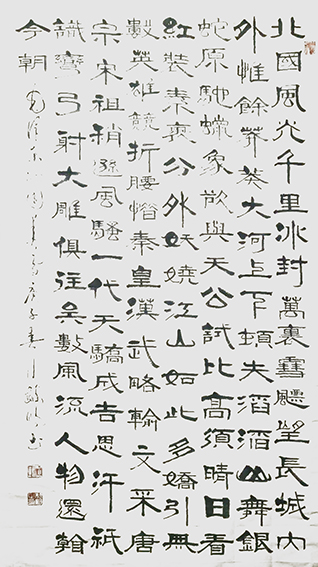 北國風光千里冰封萬裏雪飄望長城內
外惟餘莽莽大河上下頓失滔滔山舞銀
蛇原馳蠟象欲與天公試比高須晴日看
紅裝素裹分外妖嬈江山如此多嬌引無
數英雄競折腰惜秦皇漢武略輸文采唐
宗宋祖稍遜風騷一代天驕成吉思汗祇
識彎弓射大雕俱往矣數風流人物還看
今朝
毛澤東沁園春雪庚子春月書